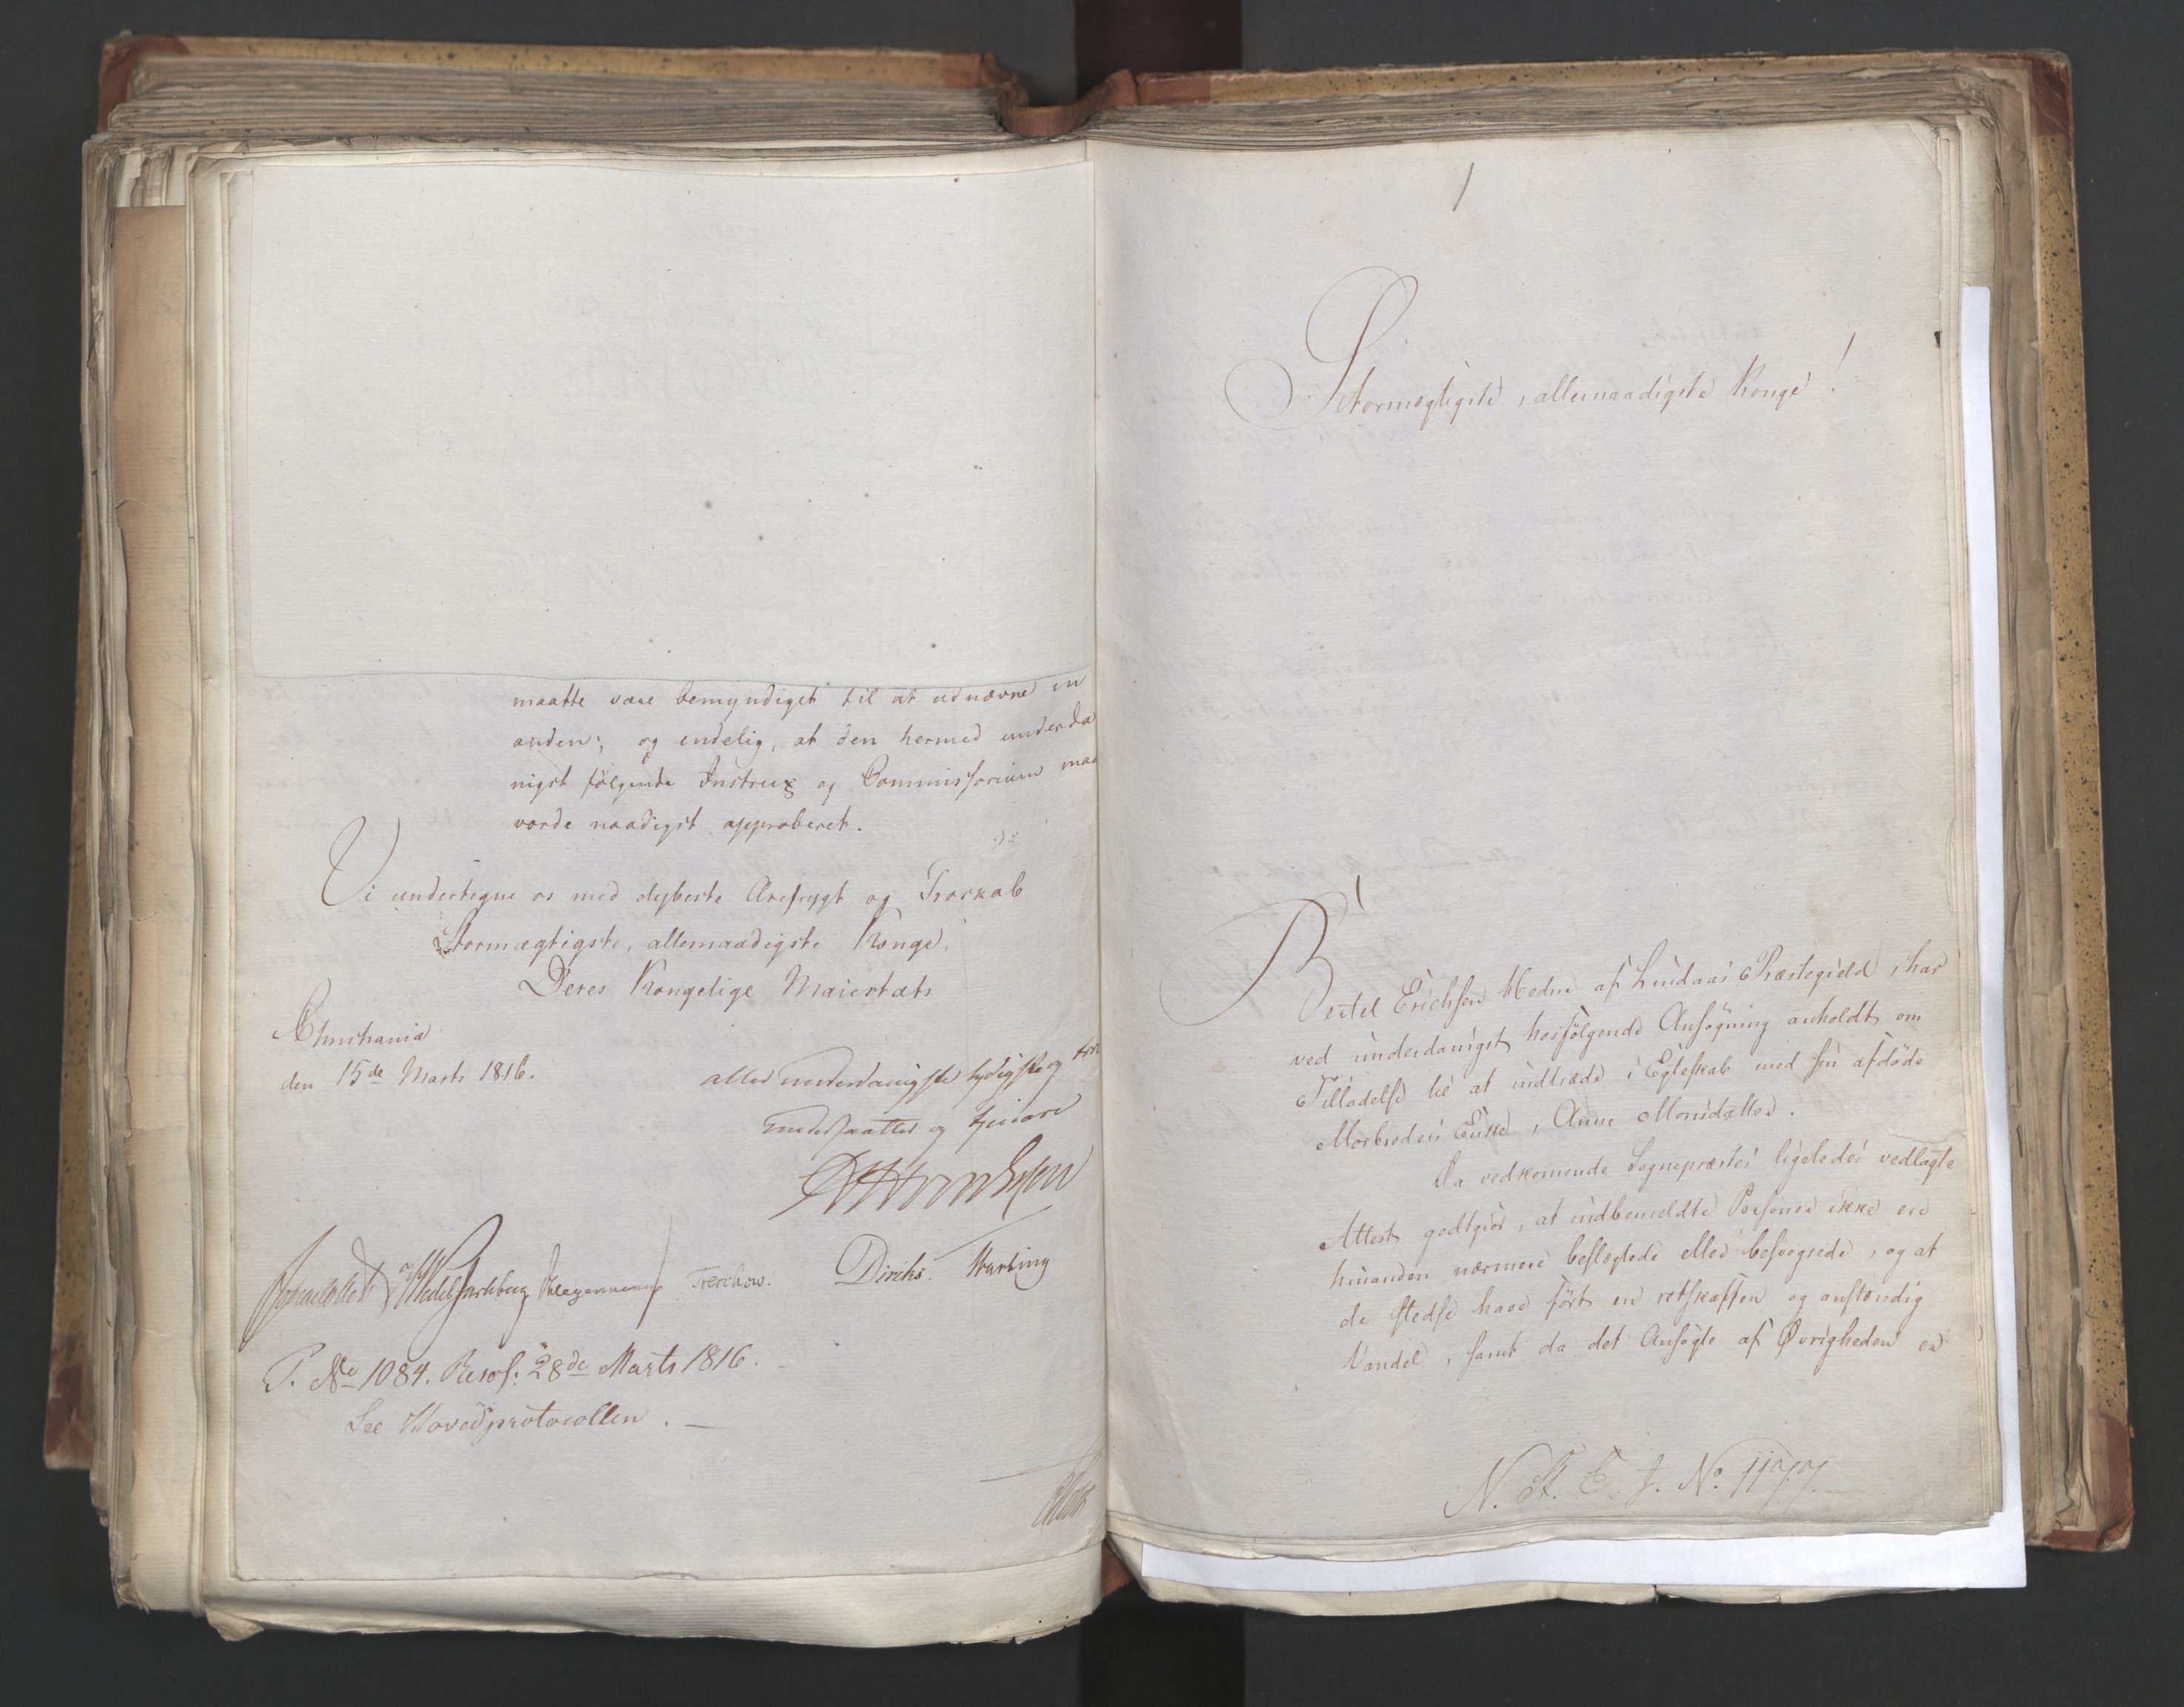 maatte være bemyndiget til at udnævne en
anden; og endelig, at den hermed underda
nigst følgende Instrux og Commissorium maa
vorde naadigst approberet.
Vi undertegne os med dybeste Ærefrygt og Troskab
Stormægtigste, allernaadigste Konge!
Deres Kongelige Maiestæts
Christiania
den 15de Marts 1816.
allerunderdanigste lydigste og
undersaatter og tjenere
Wedel Jarlsberg Treschow. Diriks.
P. No 1084. Resol: 28de Marts 1816.
See Hovedprotocollen.
1
Stormægtigste, allernaadigste Konge!
Bertel Erichsen Hedne af Lindaas Præstegield, har
ved underdanigst hosfølgende Ansøgning anholdt om
Tilladelse til at indtræde i Egteskab med sin afdøde
Morbroders Enke, Anne Monsdatter.
Da vedkomende Sognepræstes ligeledes vedlagte
Attest godtgiør, at indbemeldte Personer ikke ere
hinanden nærmere beslægtede eller besvogrede, og at
de stedse have ført en retskaffen og anstændig
Vandel, samt da det Ansøgte af Øvrigheden er
N. St. E. J. No. 1177.